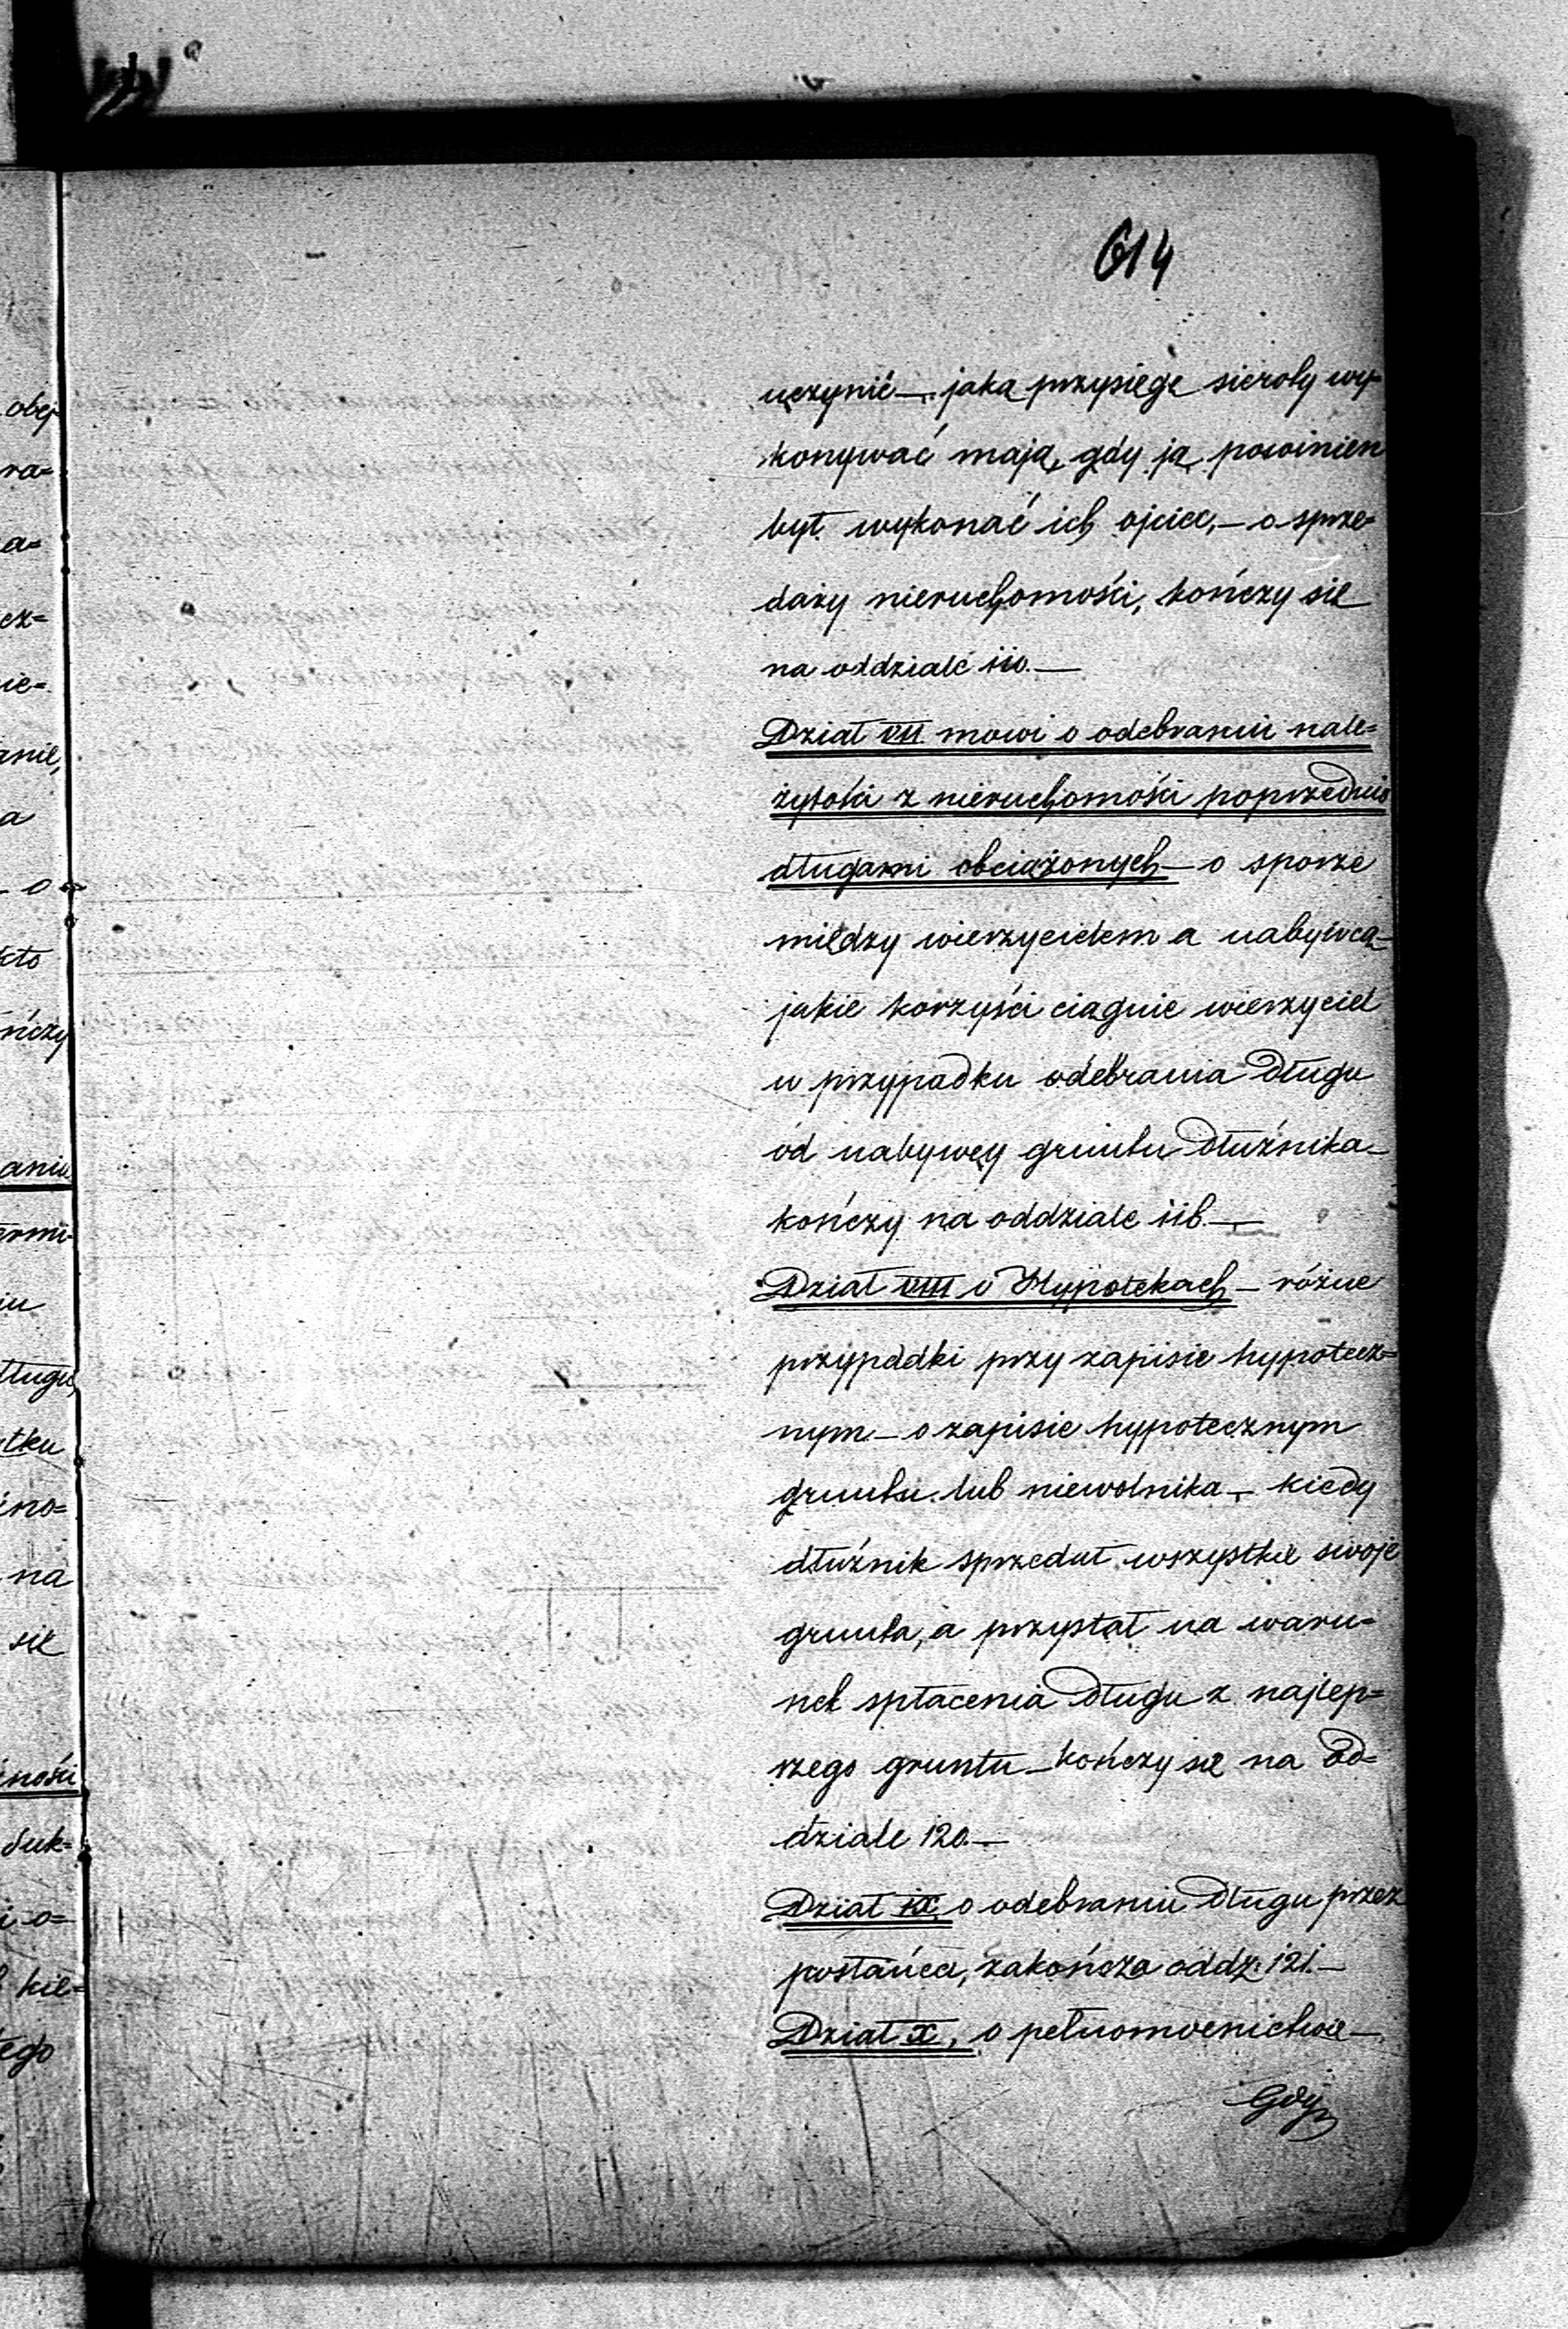 614
uczynić — jaką przysięgę sieroty wy-
konywać mają, gdy ją powinien
był wykonać ich ojciec, — o sprze=
daży nieruchomości, kończy się
na oddziale 110. —
Dział VII mowi o odebraniu nale=
żytości z nieruchomości poprzednio
długami obciążonych — o sporze
między wierzycielem a nabywcą —
jakie korzyści ciągnie wierzyciel
w przypadku odebrania długu
od nabywcy gruntu dłużnika —
kończy na oddziale 118. —
Dział VIII o Hypotekach — różne
przypadki przy zapisie hypotecz=
nym — o zapisie hypotecznym
gruntu lub niewolnika —, kiedy
dłużnik sprzedał wszystkie swoje
grunta, a przystał na waru=
nek spłacenia długu z najlep=
rzego gruntu — kończy się na od=
dziale 120. —
Dział IX, o odebraniu długu przez
posłańca, zakończa oddz: 121. —
Dział X, o pełnomocnictwie —
Gdy
obej
ra=
a=
cz=
nie=
anie,
a
— o
kto
ńczy
aniu
ermi-
iu
długu,
tku
ino=
na
się
ności
duk=
i o=
kie=
tego